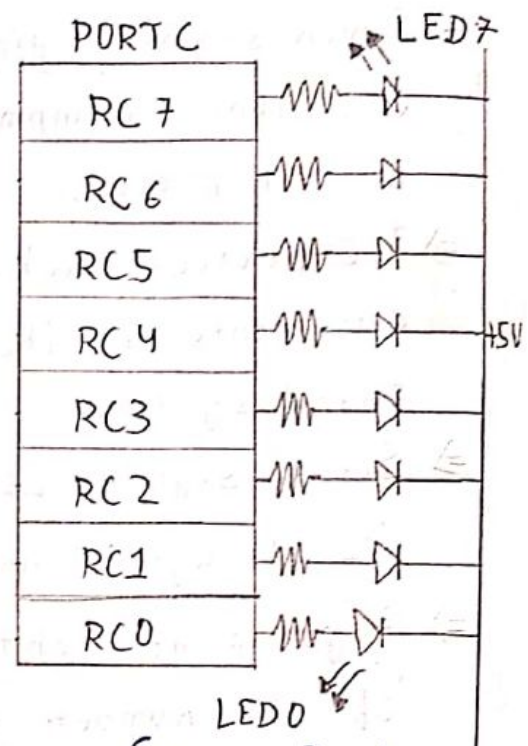 PORT C
LED7
RC 7
RC 6
RC5
RC4
+5V
RC3
RC2
RC1
RC0
LED0